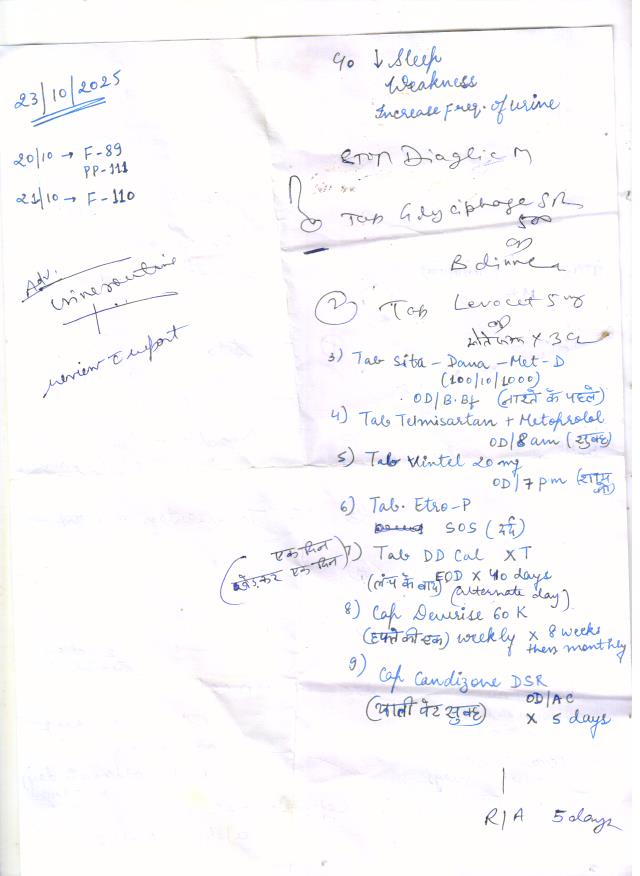 23/10/2025
20/10 → F-89
PP-111
21/10 → F-110
Adv.
Urine routine
review
c/o ↓ Sleep
Weakness
Increase freq. of urine
STOP Diaglic M
Tab Glyciphage SR
500
OD
B dinner
2) Tab Levocet 5 mg
OD
X 3
3) Tab Sita - Dana - Met - D
(100/10/1000)
OD/B.Bf (नाश्ते के पहले)
4) Tab Telmisartan + Metoprolol
OD/8 am (सुबह)
5) Tab Mintel 20 mg
OD/7 pm (शाम को)
6) Tab. Etro-P
SOS (दर्द)
7) Tab DD Cal X T
(एक दिन
छोड़कर एक दिन)
(लंच के बाद) EOD X 40 days
(alternate day)
8) Cap Devrise 60 K
(हफ्ते की एक) weekly X 8 weeks
then monthly
9) Cap Candizone DSR
OD/AC
(खाली पेट सुबह) X 5 days
R/A 5 days